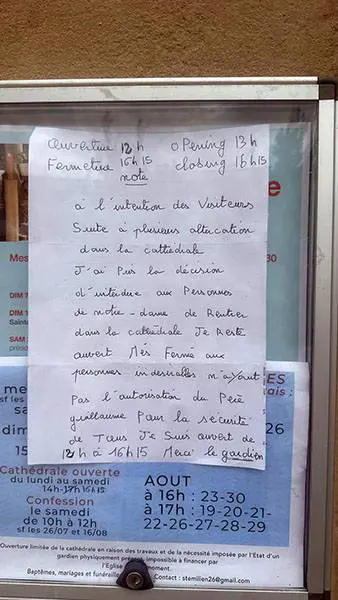 Œuverture 12h oPening 13h
Fermeture 16h15 closing 16h15
note
à l'intention des Visiteurs
Suite à plusieurs altercation
dans la cathédrale
J'ai Pris la décision
d'interdire aux Personnes
de notre-dame de Rentier
dans la cathédrale Je Reste
ouvert Mes Fermé aux
personnes indesirables n'ayant
Pas l'autorisation du Père
guillaume Pour la sécurité
de Tous Je Suis ouvert de
12h à 16h15 Merci le gardien
e
Mes
30
DIM
DIM 1
Sainte
SAM
prési
me
sf les
dim
15
ES
26
Cathédrale ouverte
du lundi au samedi
14h-17h 16h15
Confession
le samedi
de 10h à 12h
sf les 26/07 et 16/08
AOUT
à 16h : 23-30
à 17h : 19-20-21-
22-26-27-28-29
Ouverture limitée de la cathédrale en raison des travaux et de la nécessité imposée par l'Etat d'un
gardien physiquement présent impossible à financer par
l'Eglise moment.
Baptêmes, mariages et funérailles Contact : stemilien26@gmail.com